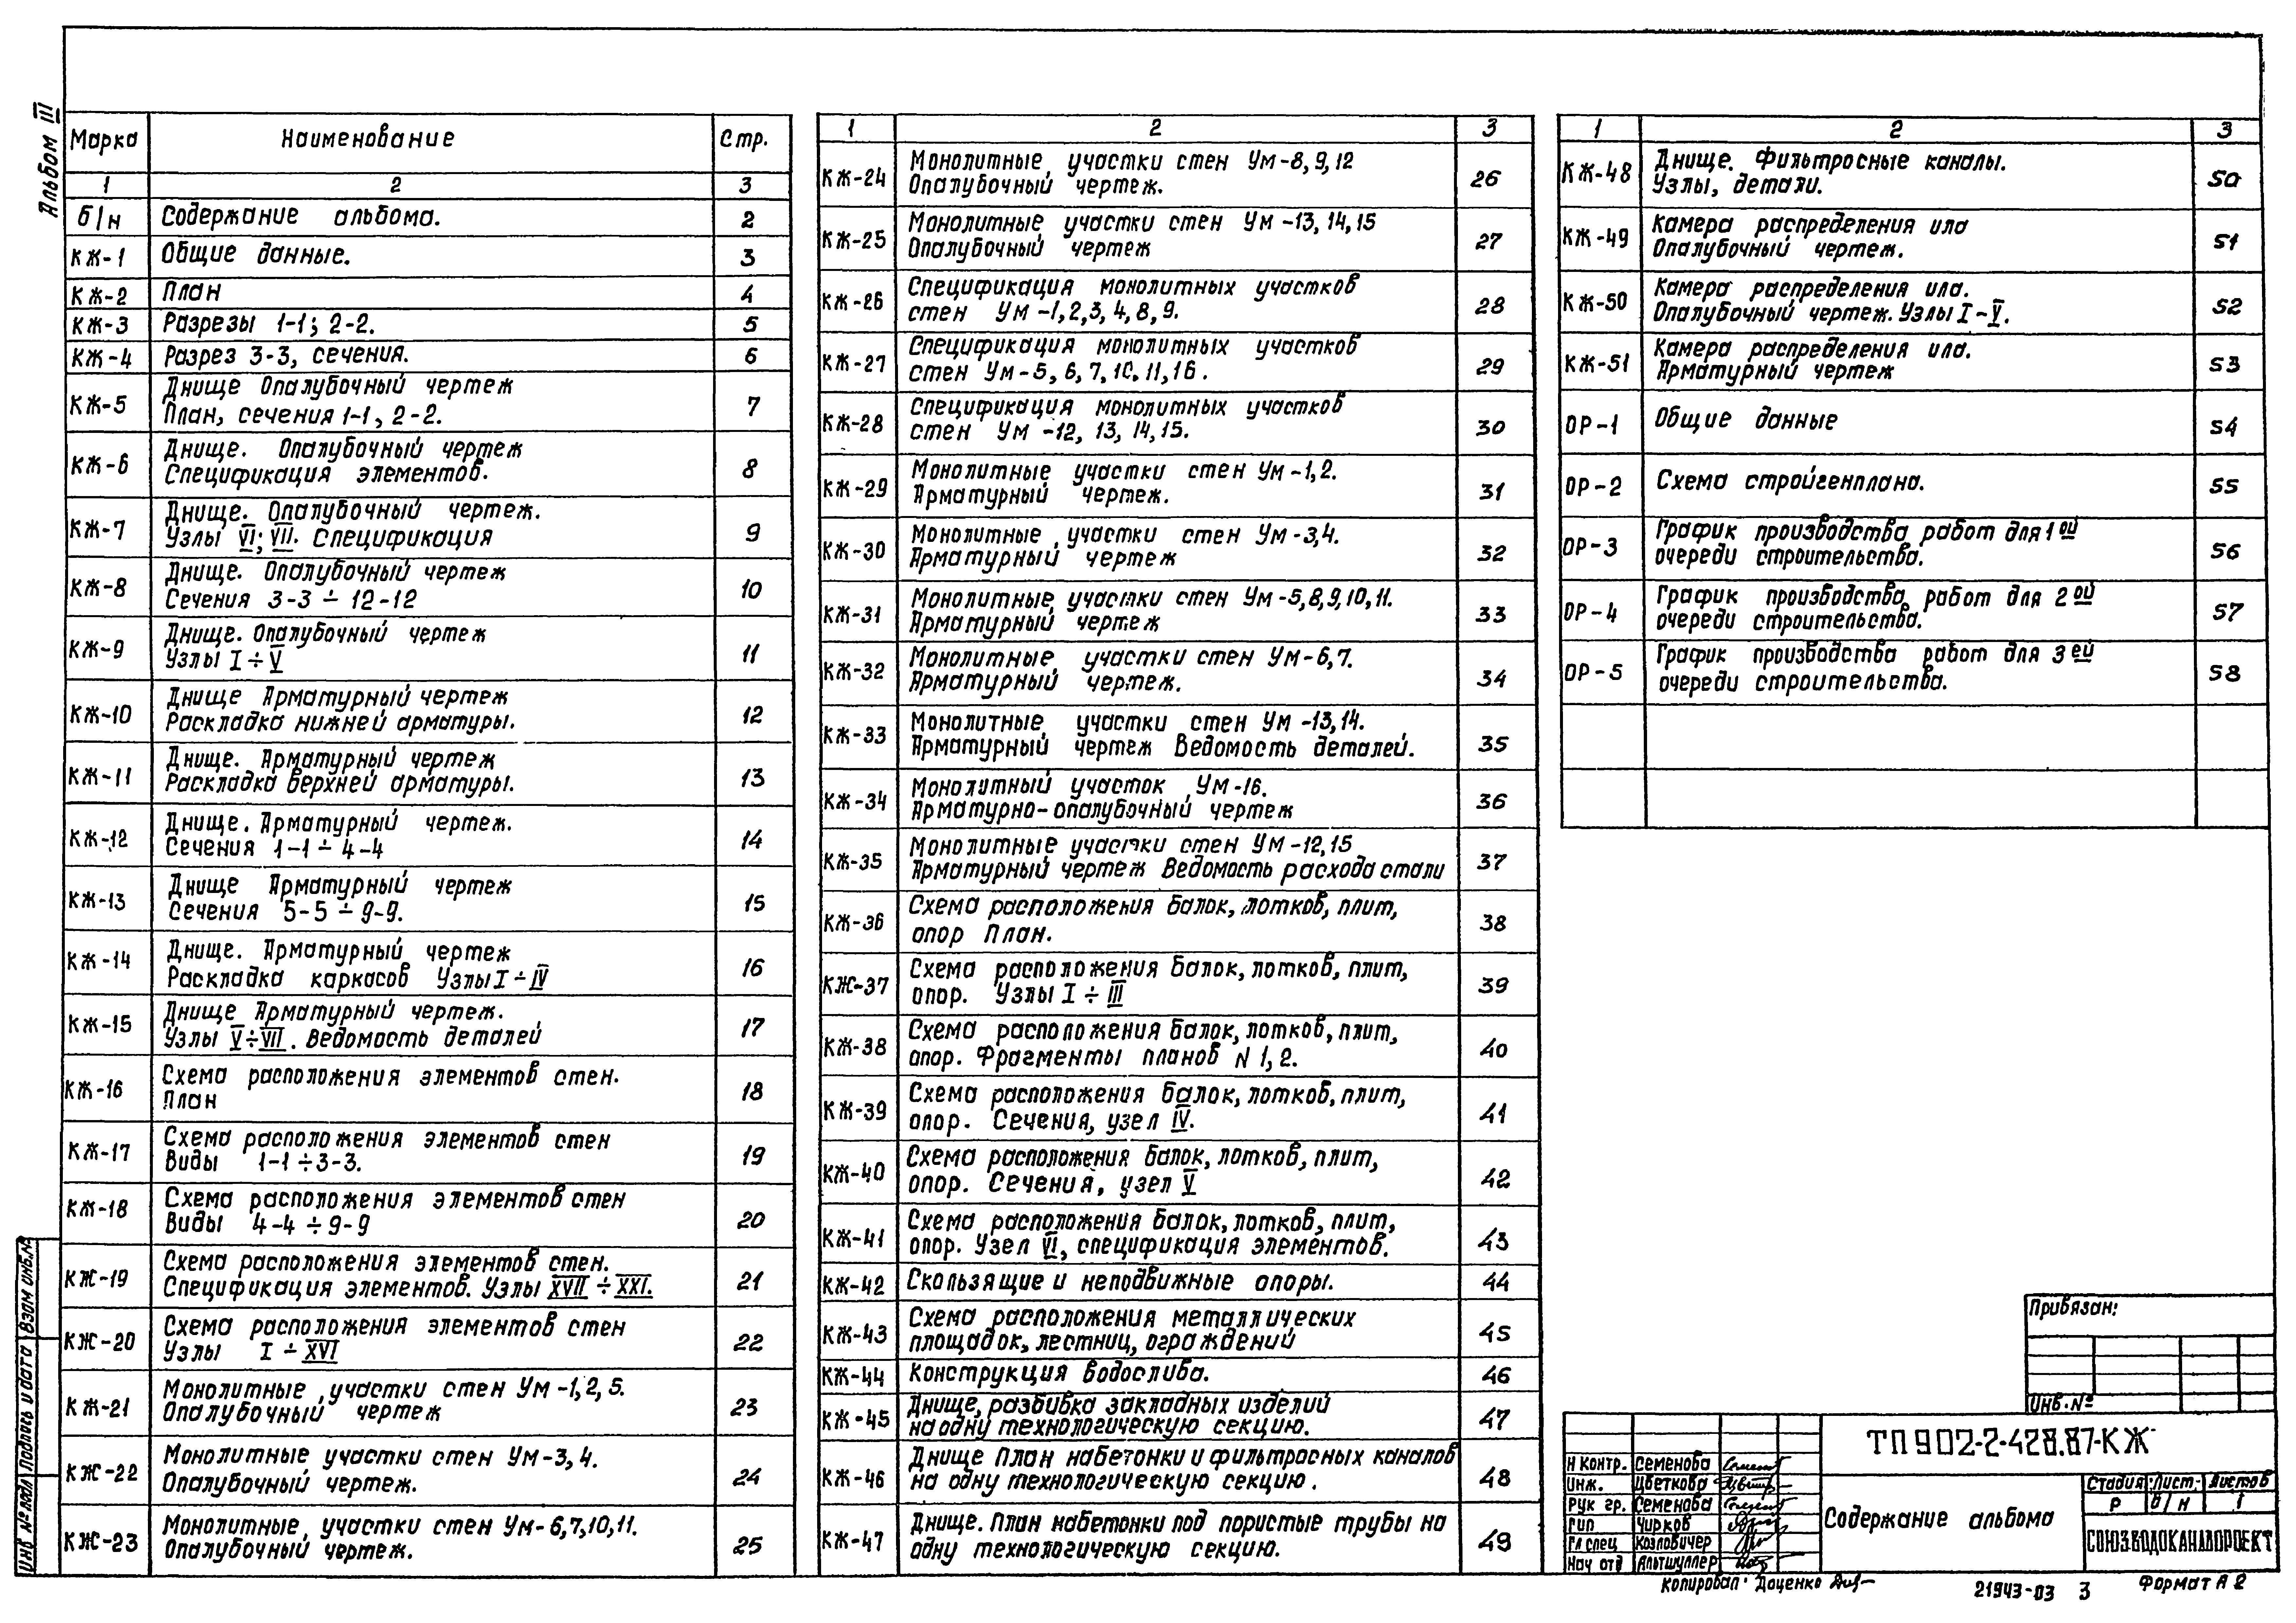 Альбом III
Марка Наименование Стр.
1 2 3
б/н Содержание альбома. 2
КЖ-1 Общие данные. 3
КЖ-2 План 4
КЖ-3 Разрезы 1-1; 2-2. 5
КЖ-4 Разрез 3-3, сечения. 6
КЖ-5 Днище Опалубочный чертеж
План, сечения 1-1, 2-2. 7
КЖ-6 Днище. Опалубочный чертеж
Спецификация элементов. 8
КЖ-7 Днище. Опалубочный чертеж.
Узлы VI; VII. Спецификация 9
КЖ-8 Днище. Опалубочный чертеж
Сечения 3-3 ÷ 12-12 10
КЖ-9 Днище. Опалубочный чертеж
Узлы I ÷ V 11
КЖ-10 Днище Арматурный чертеж
Раскладка нижней арматуры. 12
КЖ-11 Днище. Арматурный чертеж
Раскладка верхней арматуры. 13
КЖ-12 Днище. Арматурный чертеж.
Сечения 1-1 ÷ 4-4 14
КЖ-13 Днище Арматурный чертеж
Сечения 5-5 ÷ 9-9. 15
КЖ-14 Днище. Арматурный чертеж
Раскладка каркасов Узлы I ÷ IV 16
КЖ-15 Днище Арматурный чертеж.
Узлы V÷VII. Ведомость деталей 17
КЖ-16 Схема расположения элементов стен.
План 18
КЖ-17 Схема расположения элементов стен
Виды 1-1 ÷ 3-3. 19
КЖ-18 Схема расположения элементов стен
Виды 4-4 ÷ 9-9 20
КЖ-19 Схема расположения элементов стен.
Спецификация элементов. Узлы XVII ÷ XXI. 21
КЖ-20 Схема расположения элементов стен
Узлы I ÷ XVI 22
КЖ-21 Монолитные участки стен Ум-1,2,5.
Опалубочный чертеж 23
КЖ-22 Монолитные участки стен Ум-3,4.
Опалубочный чертеж. 24
КЖ-23 Монолитные участки стен Ум-6,7,10,11.
Опалубочный чертеж. 25
1 2 3
КЖ-24 Монолитные участки стен Ум-8,9,12
Опалубочный чертеж. 26
КЖ-25 Монолитные участки стен Ум-13,14,15
Опалубочный чертеж 27
КЖ-26 Спецификация монолитных участков
стен Ум-1,2,3,4,8,9. 28
КЖ-27 Спецификация монолитных участков
стен Ум-5,6,7,10,11,16. 29
КЖ-28 Спецификация монолитных участков
стен Ум-12, 13, 14, 15. 30
КЖ-29 Монолитные участки стен Ум-1,2.
Арматурный чертеж. 31
КЖ-30 Монолитные участки стен Ум-3,4.
Арматурный чертеж 32
КЖ-31 Монолитные участки стен Ум-5,8,9,10,11.
Арматурный чертеж 33
КЖ-32 Монолитные участки стен Ум-6,7.
Арматурный чертеж. 34
КЖ-33 Монолитные участки стен Ум-13,14.
Арматурный чертеж Ведомость деталей. 35
КЖ-34 Монолитный участок Ум-16.
Арматурно-опалубочный чертеж 36
КЖ-35 Монолитные участки стен Ум-12,15
Арматурный чертеж Ведомость расхода стали 37
КЖ-36 Схема расположения балок, лотков, плит,
опор План. 38
КЖ-37 Схема расположения балок, лотков, плит,
опор. Узлы I ÷ III 39
КЖ-38 Схема расположения балок, лотков, плит,
опор. Фрагменты планов N 1, 2. 40
КЖ-39 Схема расположения балок, лотков, плит,
опор. Сечения, узел IV. 41
КЖ-40 Схема расположения балок, лотков, плит,
опор. Сечения, узел V 42
КЖ-41 Схема расположения балок, лотков, плит,
опор. Узел VI, спецификация элементов. 43
КЖ-42 Скользящие и неподвижные опоры. 44
КЖ-43 Схема расположения металлических
площадок, лестниц, ограждений 45
КЖ-44 Конструкция водослива. 46
КЖ-45 Днище, разбивка закладных изделий
на одну технологическую секцию. 47
КЖ-46 Днище План набетонки и фильтросных каналов
на одну технологическую секцию. 48
КЖ-47 Днище. План набетонки под пористые трубы на
одну технологическую секцию. 49
1 2 3
КЖ-48 Днище. Фильтросные каналы.
Узлы, детали. 50
КЖ-49 Камера распределения ила
Опалубочный чертеж. 51
КЖ-50 Камера распределения ила.
Опалубочный чертеж. Узлы I-V. 52
КЖ-51 Камера распределения ила.
Арматурный чертеж 53
ОР-1 Общие данные 54
ОР-2 Схема стройгенплана. 55
ОР-3 График производства работ для 1 ой
очереди строительства. 56
ОР-4 График производства работ для 2 ой
очереди строительства. 57
ОР-5 График производства работ для 3 ей
очереди строительства. 58
Привязан:
Инв. №
ТП902-2-428.87-КЖ
Н контр. Семенова
Инж. Цветкова
Рук гр. Семенова
Гип Чирков
Гл спец Козловичер
Нач отд Альтшуллер
Содержание альбома
Стадия Лист Листов
Р б/н 1
СОЮЗВОДОКАНАЛПРОЕКТ
Копировал: Доценко
21943-03 3
Формат А2
Инв № подл Подпись и дата Взам инв.№